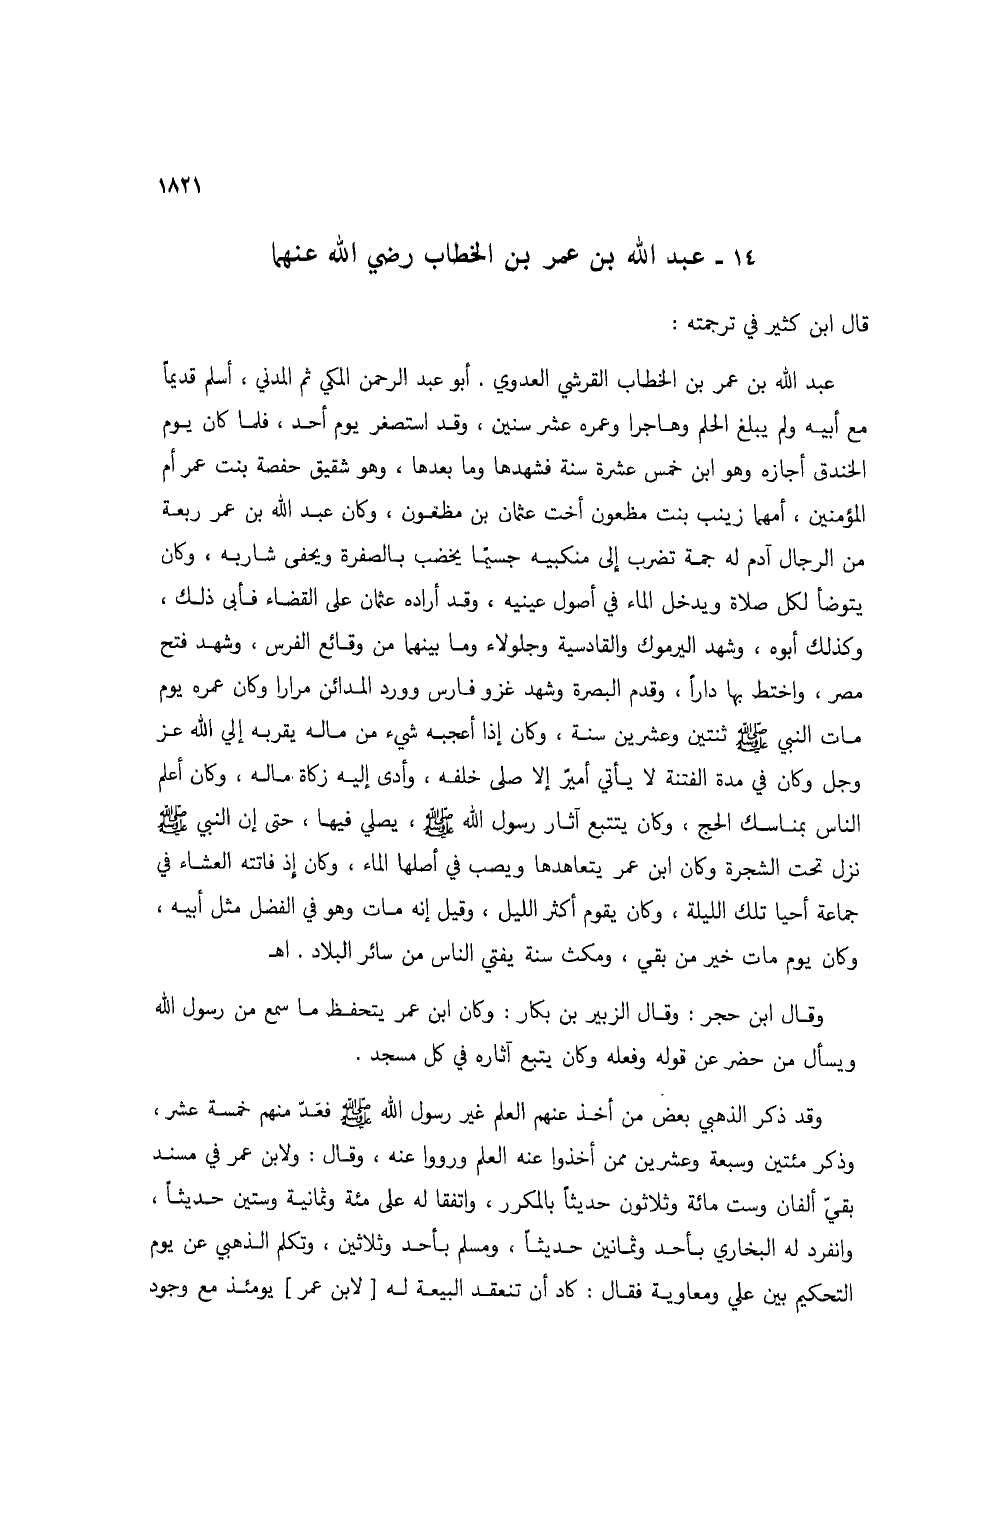 ١٨٢١
١٤ ـ عبد الله بن عمر بن الخطاب رضي الله عنهما
قال ابن كثير في ترجمته :
عبد الله بن عمر بن الخطاب القرشي العدوي . أبو عبد الرحمن المكي ثم المدني ، أسلم قديماً
مع أبيه ولم يبلغ الحلم وهاجرا وعمره عشر سنين ، وقد استصغر يوم أحد ، فلما كان يوم
الخندق أجازه وهو ابن خمس عشرة سنة فشهدها وما بعدها ، وهو شقيق حفصة بنت عمر أم
المؤمنين ، أمهما زينب بنت مظعون أخت عثمان بن مظعون ، وكان عبد الله بن عمر ربعة
من الرجال آدم له جمة تضرب إلى منكبيه جسيمًا يخضب بالصفرة ويحفى شاربه ، وكان
يتوضأ لكل صلاة ويدخل الماء في أصول عينيه ، وقد أراده عثمان على القضاء فأبى ذلك ،
وكذلك أبوه ، وشهد اليرموك والقادسية وجلولاء وما بينهما من وقائع الفرس ، وشهد فتح
مصر ، واختط بها داراً ، وقدم البصرة وشهد غزو فارس وورد المدائن مرارا وكان عمره يوم
مات النبي ﷺ ثنتين وعشرين سنة ، وكان إذا أعجبه شيء من ماله يقربه إلي الله عز
وجل وكان في مدة الفتنة لا يأتي أميرٌ إلا صلى خلفه ، وأدى إليه زكاة ماله ، وكان أعلم
الناس بمناسك الحج ، وكان يتتبع آثار رسول الله ﷺ ، يصلي فيها ، حتى إن النبي ﷺ
نزل تحت الشجرة وكان ابن عمر يتعاهدها ويصب في أصلها الماء ، وكان إذ فاتته العشاء في
جماعة أحيا تلك الليلة ، وكان يقوم أكثر الليل ، وقيل إنه مات وهو في الفضل مثل أبيه ،
وكان يوم مات خير من بقي ، ومكث سنة يفتي الناس من سائر البلاد . اهـ
وقال ابن حجر : وقال الزبير بن بكار : وكان ابن عمر يتحفظ ما سمع من رسول الله
ويسأل من حضر عن قوله وفعله وكان يتبع آثاره في كل مسجد .
وقد ذكر الذهبي بعض من أخذ عنهم العلم غير رسول الله ﷺ فعَدّ منهم خمسة عشر ،
وذكر مئتين وسبعة وعشرين ممن أخذوا عنه العلم ورووا عنه ، وقال : ولابن عمر في مسند
بقيّ ألفان وست مائة وثلاثون حديثاً بالمكرر ، واتفقا له على مئة وثمانية وستين حديثاً ،
وانفرد له البخاري بأحد وثمانين حديثاً ، ومسلم بأحد وثلاثين ، وتكلم الذهبي عن يوم
التحكيم بين علي ومعاوية فقال : كاد أن تنعقد البيعة له [ لابن عمر ] يومئذ مع وجود